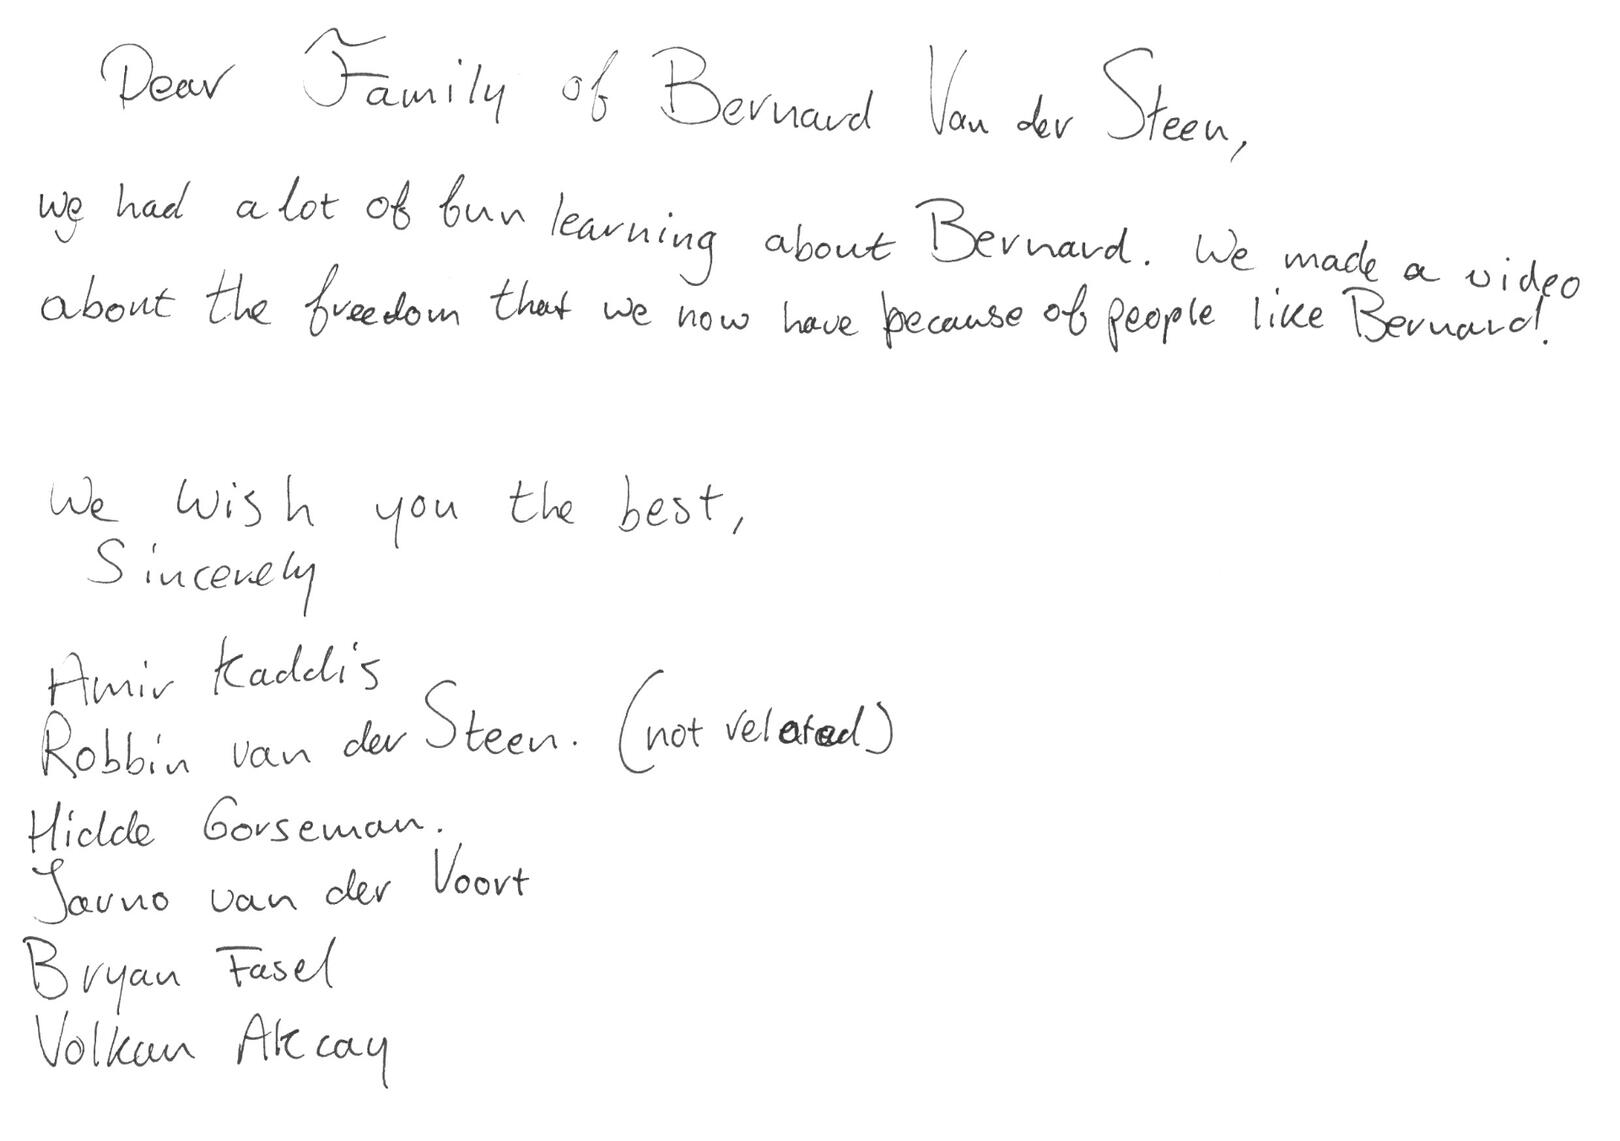 Dear Family of Bernard Van der Steen,
we had a lot of fun learning about Bernard. We made a video
about the freedom that we now have because of people like Bernard.
We wish you the best,
Sincerely
Amir Kaddis
Robbin van der Steen. (not related)
Hidde Gorseman.
Jarno van der Voort
Bryan Fasel
Volkan Akcay